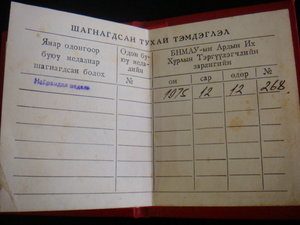 ШАГНАГДСАН ТУХАЙ ТЭМДЭГЛЭЛ
Ямар одонгоор
буюу медалиар
шагнагдсан болох
Одон бу-
юу меда-
лийн
№
БНМАУ-ын Ардын Их
Хурлын Тэргүүлэгчдийн
зарлигийн
он
сар
өдөр
№
Найрамдал медаль
1975
12
12
268